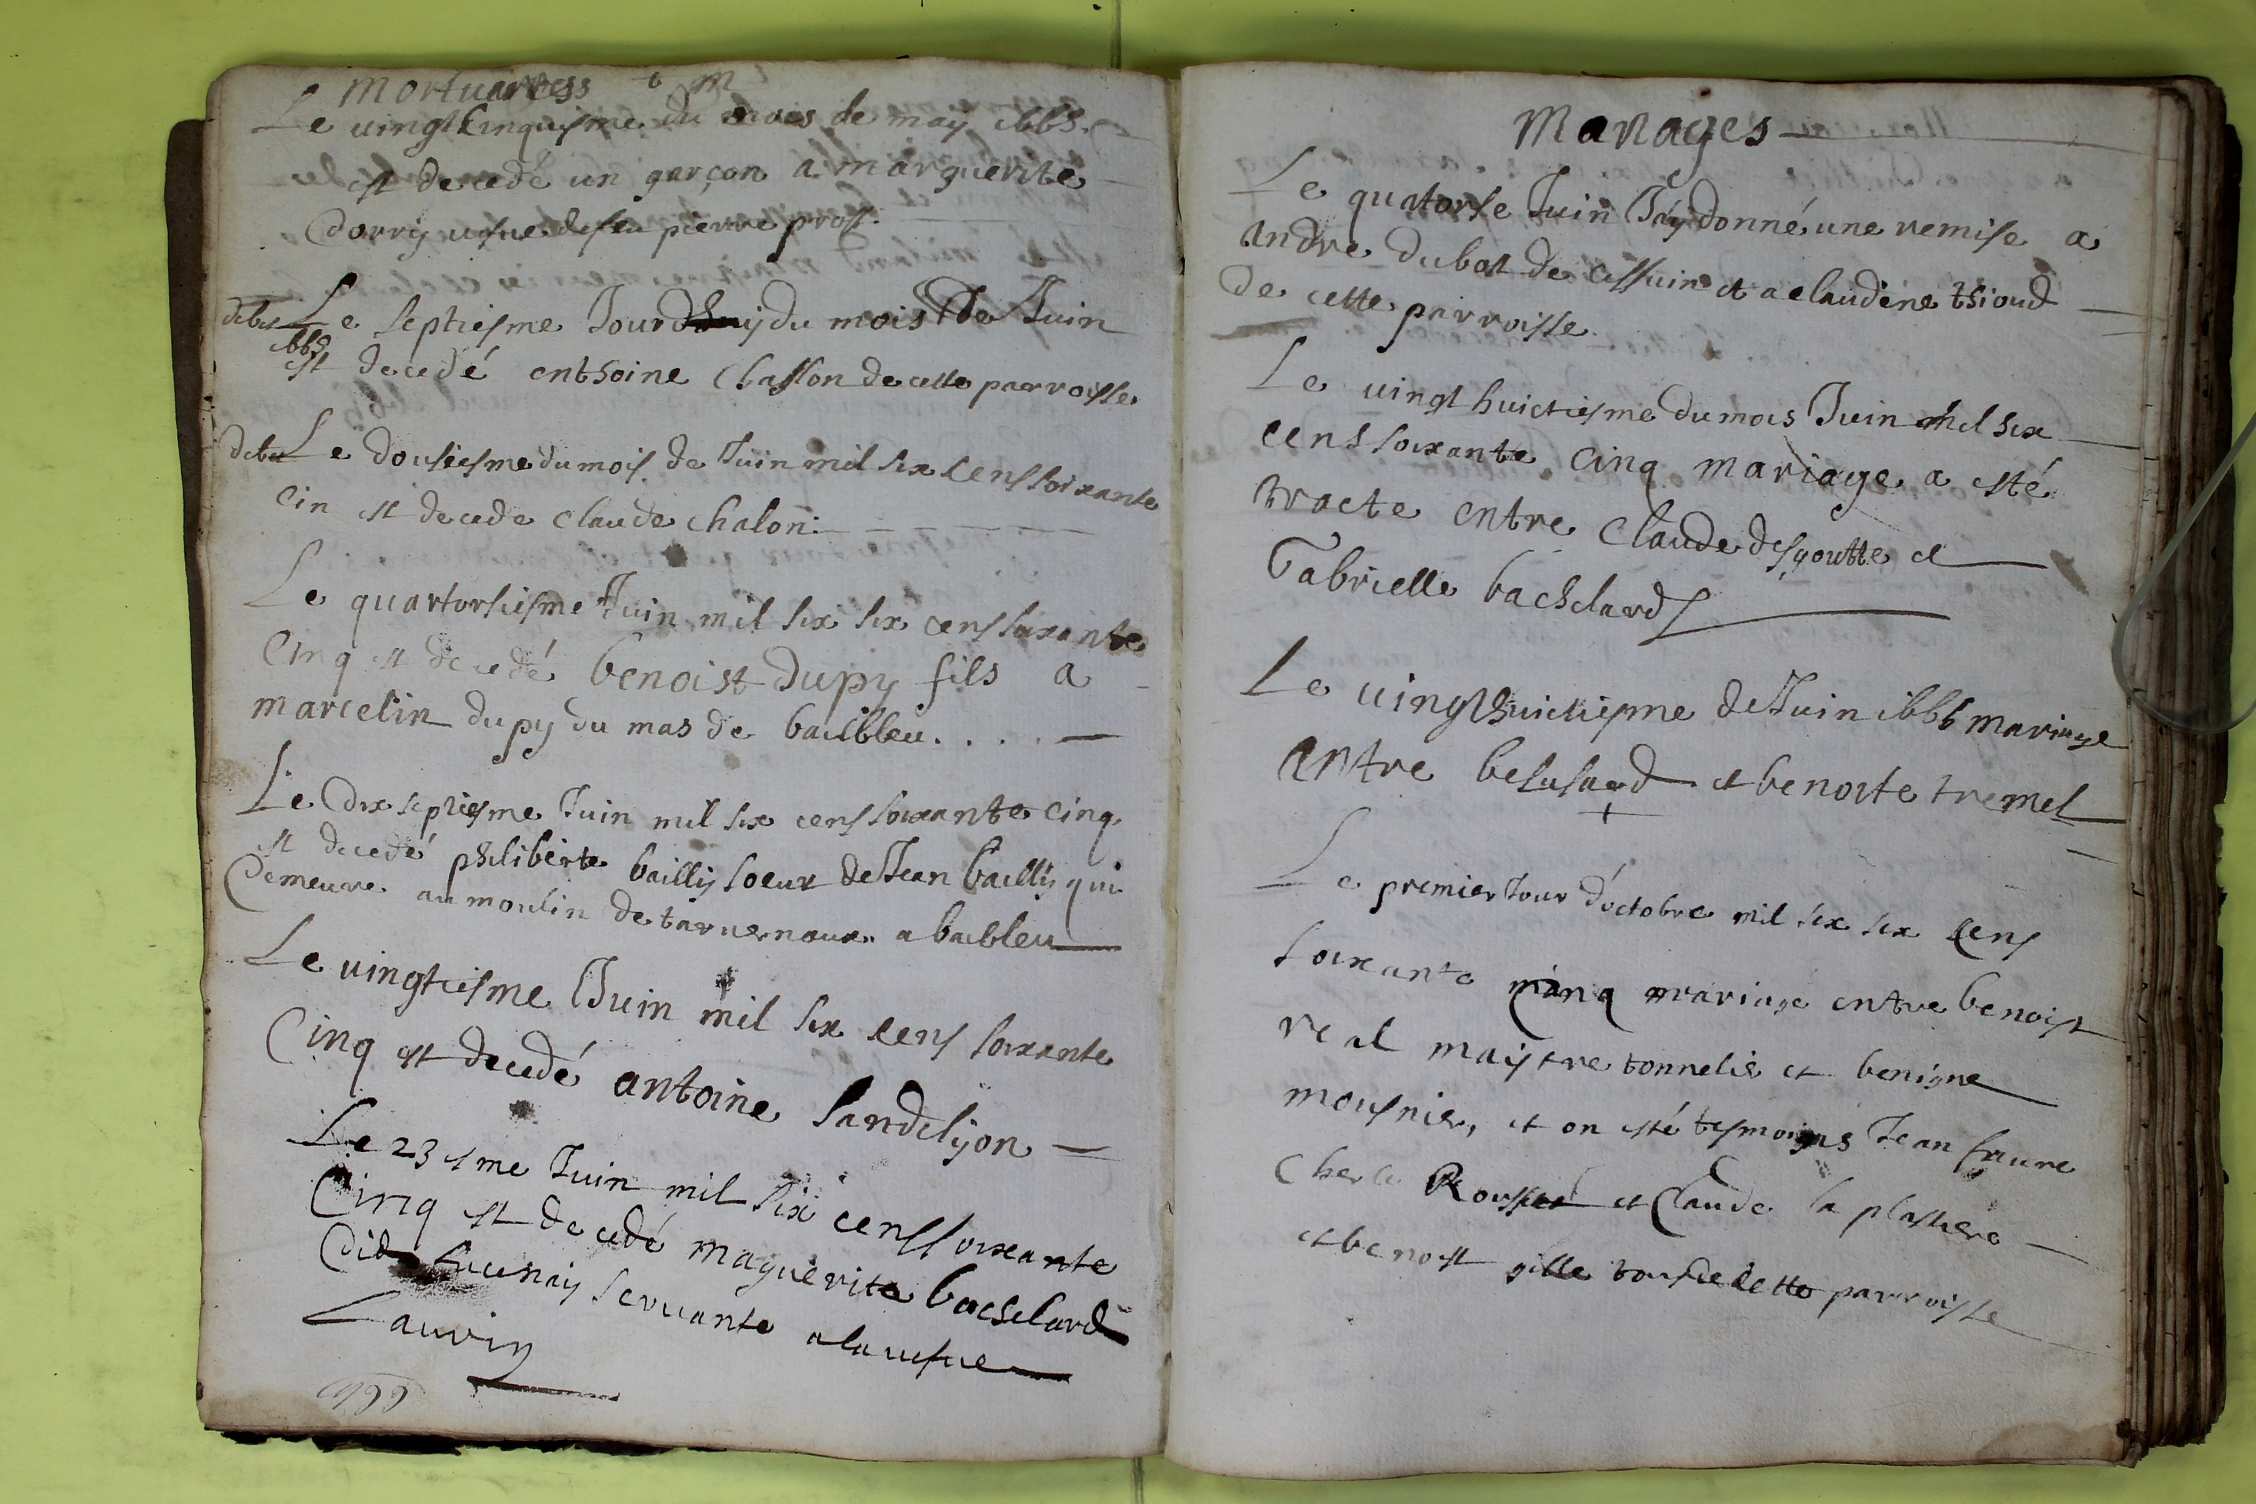 Mortuaress
Le vingtcinquisme du mois de may 1665.
est decedé un garçon a marguerite
Dorry vefue defeu pierre prost.
Le septiesme Jour du mois de Juin
1665
est decedé enthoine Chasson de cette parroisse
Le dousiesme du mois de Juin mil six cens soixante
cin est decede claude chalon.
Le quartorsiesme Juin mil six six cens soixante
Cinq est decedé benoist dupy fils a
marcelin dupy du mas de bailbleu....
Le dix septiesme Juin mil six cens soixante cinq
est decedé philiberte bailly soeur de Jean bailly qui
Demeure au moulin de tavernaux a baibleu
Le vingtiesme Juin mil six cens soixante
Cinq est decedé antoine sandelyon
Le 23 esme Juin mil six cens soixante
Cinq est decedé maguerite bachelard
servante a la vefue
Lauvin
Mariages
Le quatorse Juin J'ay donné une remise a
Andre dubost de et a claudine thioud
De cette parroisse
Le vingt huictiesme du mois Juin mil six
cens soixante cinq mariage a esté
tracte entre Claude desgoutte et
Gabrielle bachelard
Le vingthuictiesme de Juin 1666 mariage
antre besusard et benoite tremel
Le premier Jour d'octobre mil six six cens
soixante cinq mariage entre benoist
real maistre tonnelie et benigne
mousnier, et on esté tesmoigns Jean faure
Rousset et Claude la plastiere
et benoist gille tous de cette parroisse